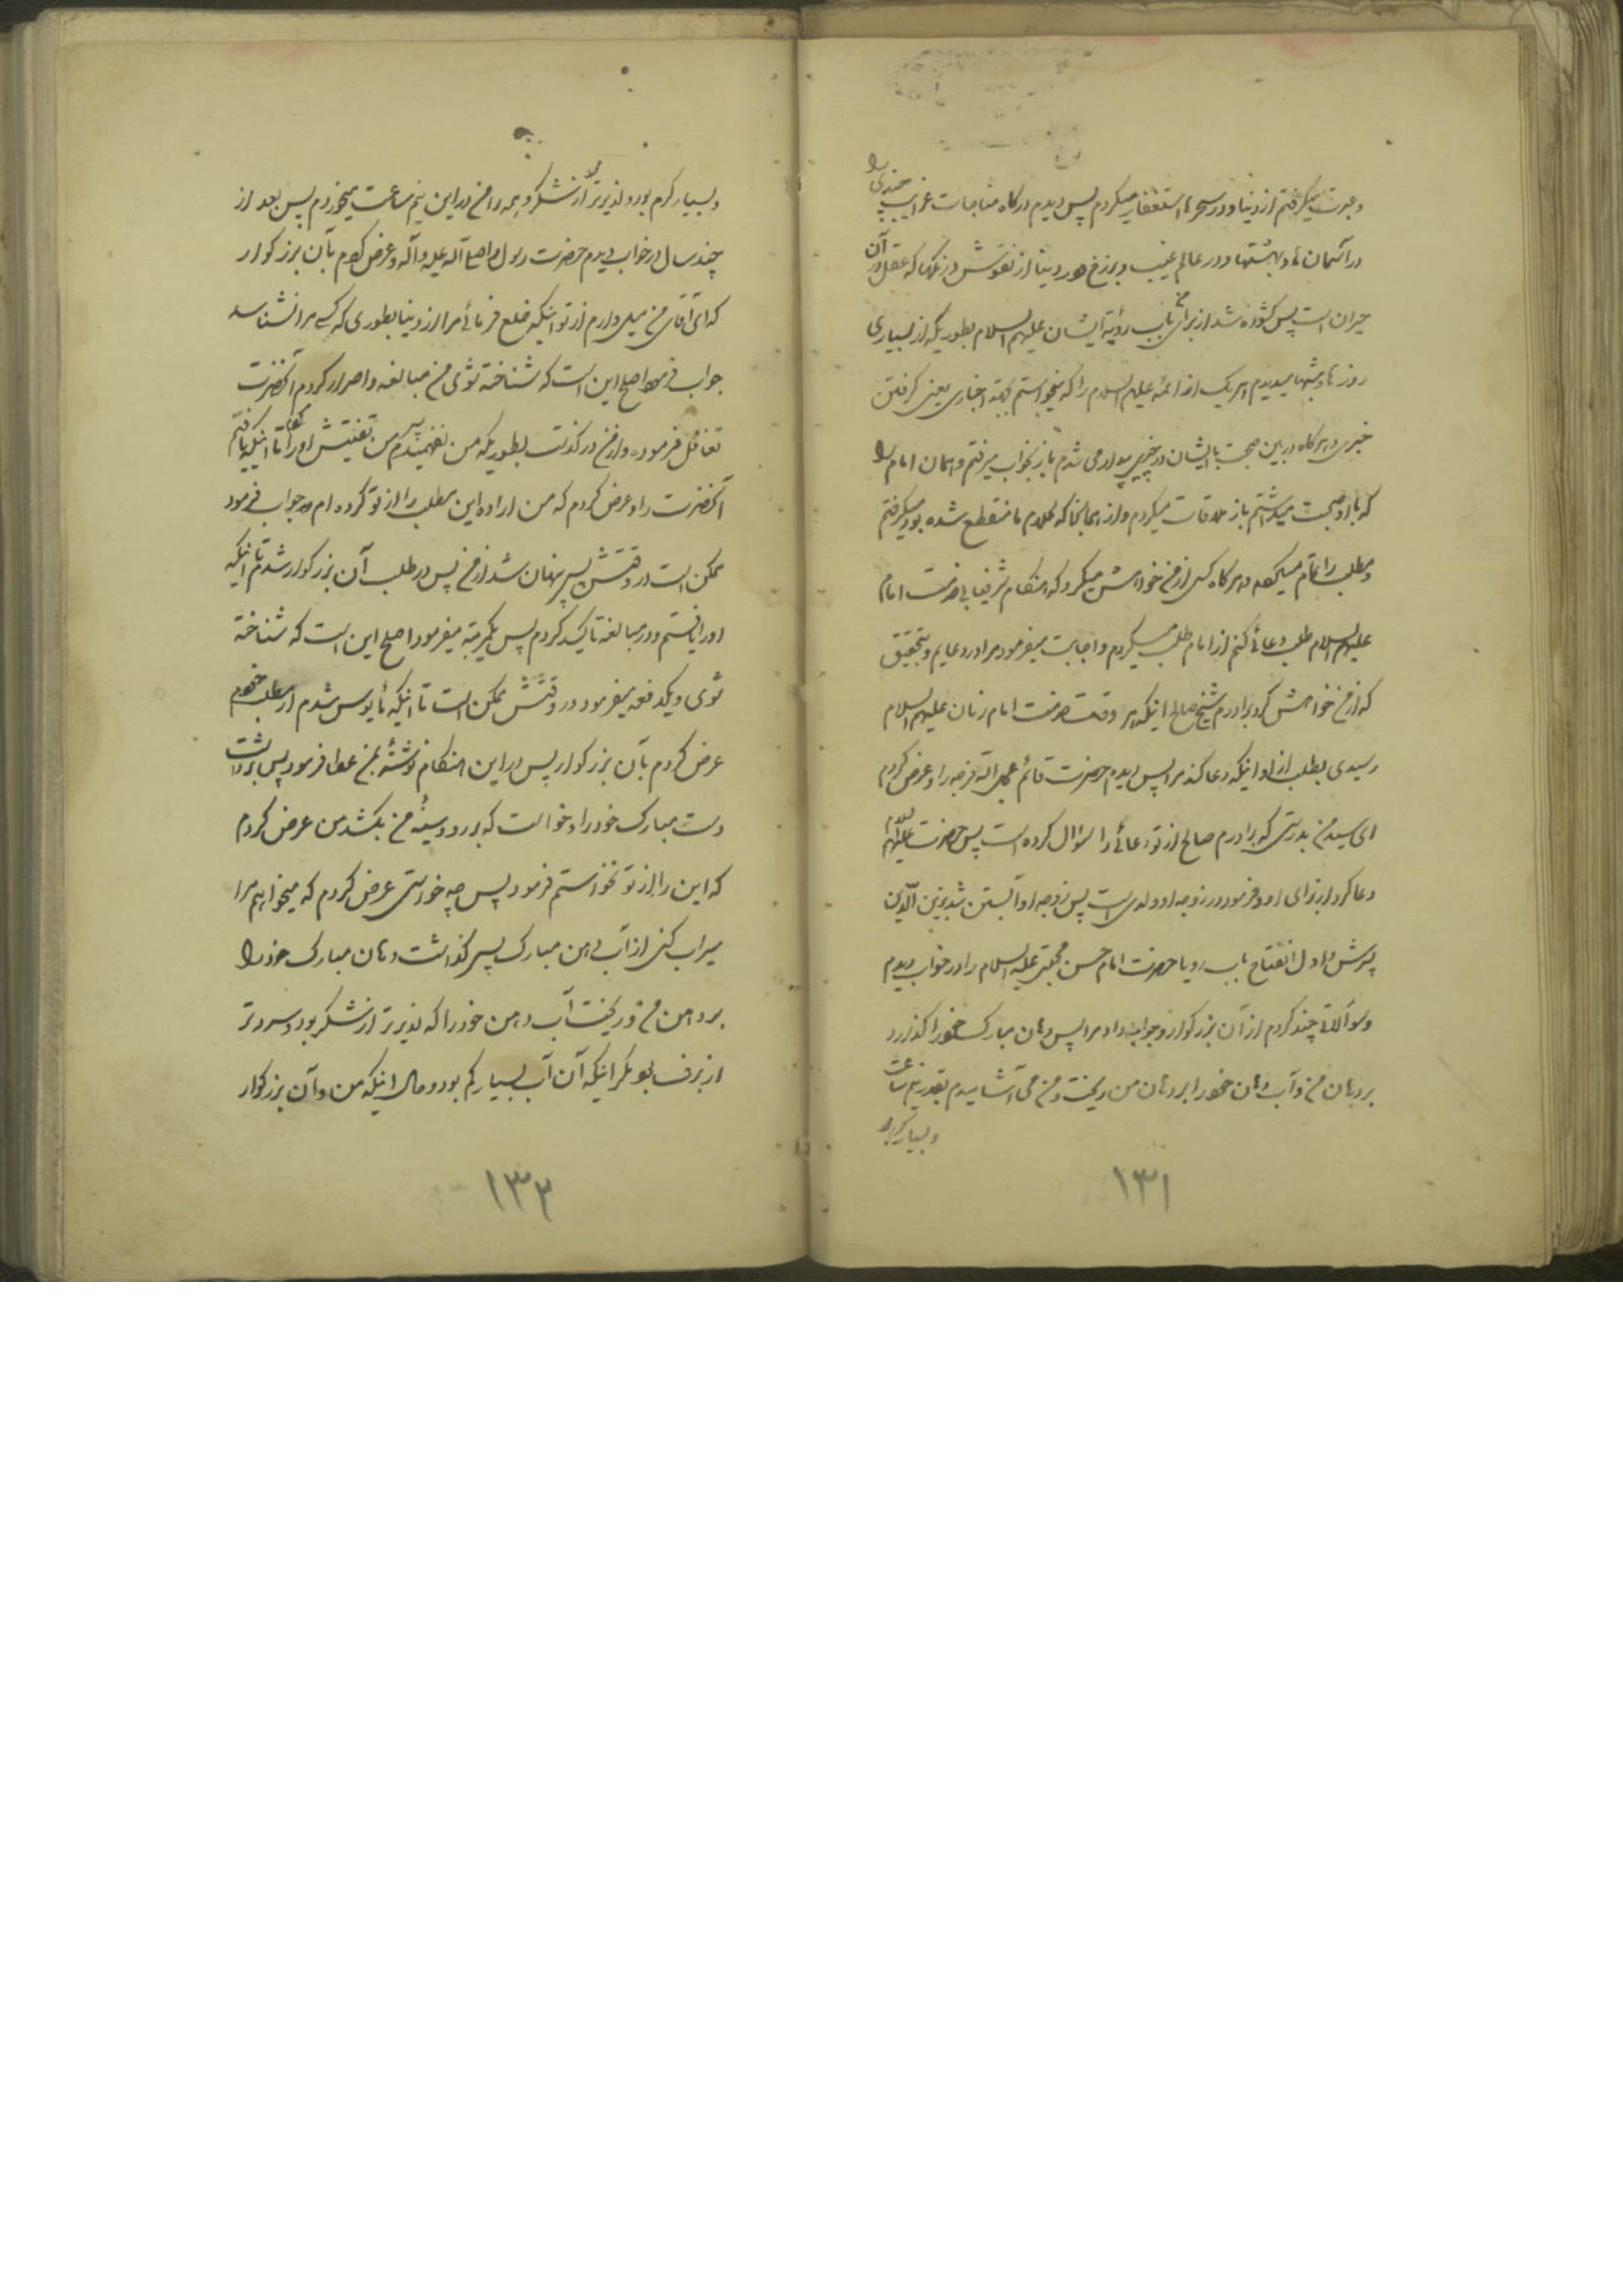 و عبرت میگرفتم از دنیا و در سحرها استغفار میکردم پس دیدم در کاه مناجات غرایب چندی را
در آسمان ها و بهشتها و در عالم غیب و برزخ و در دنیا از نقوش و رنگها که عقل در آن
حیران است پس کشوده شد از برای من باب رؤیة ایشان علیهم السلام بطوریکه از بسیاری
روزها و شبها میدیدم هر یک از ائمه علیهم السلام را که میخواستم بجهة اخباری یعنی گرفتن
خبری و هر کاه در بین صحبت با ایشان در چیزی بیدار می شدم باز بخواب میرفتم و همان امام را
که با او صحبت میداشتم باز ملاقات میکردم و از همانجا که کلام ما منقطع شده بود میگرفتم
و مطلب را تمام میکردم و هر کاه کسی از من خواهش میکرد که هنکام شرفیابی خدمت امام
علیهم السلام طلب دعائی کنم از امام طلب میکردم و اجابت میفرمود مرا در دعایم و بتحقیق
که از من خواهش کرد برادرم شیخ صالح اینکه هر وقت خدمت امام زمان علیهم السلام
رسیدی بطلب از او اینکه دعا کند مرا پس دیدم حضرت قائم عجل الله فرجه را و عرض کردم
ای سید من بدرستی که برادرم صالح از تو دعائی را سؤال کرده است پس حضرت علیهم السلام
دعا کرد از برای او و فرمود در زوجه او ولدی است پس زوجه او آبستن شد بزین الدین
پسرش و اول انفتاح باب رویا حضرت امام حسن مجتبی علیه السلام را در خواب دیدم
و سوآلاتی چند کردم از آن بزرکوار و جواب داد مرا پس دهان مبارک خود را کذارد
بر دهان من و آب دهان خود را بر دهان من ریخت و من می آشامیدم بقدر نیم ساعت
و بسیار گرم بود
۱۳۱
و بسیار کرم بود و لذیذتر از شکر و همه را من در این نیم ساعت میخوردم پس بعد از
چند سال در خواب دیدم حضرت رسول خدا صلی الله علیه و آله و عرض کردم بآن بزرکوار
که ای آقای من میل دارم از تو اینکه خلع فرمائی مرا از دنیا بطوری که کسی مرا نشناسد
جواب فرمود اصلح این است که شناخته شوی من مبالغه و اصرار کردم آنحضرت
تغافل فرموده و از من در کذشت بطوریکه من نفهمیدم پس من تفتیش او را کردم تا اینکه یافتم
آنحضرت را و عرض کردم که من اراده این مطلب را از تو کرده ام جواب فرمود
ممکن است در وقتش پس پنهان شد از من پس در طلب آن بزرکوار شدم تا اینکه
او را یافتم و در مبالغه تاکید کردم پس یکمرتبه میفرمود اصلح این است که شناخته
شوی و یکدفعه میفرمود در وقتش ممکن است تا اینکه مأیوس شدم از مطلب خودم
عرض کردم بآن بزرکوار پس در این هنکام نوشتهٔ بمن عطا فرمود پس برداشت
دست مبارک خود را و خواست که بر رو و سینهٔ من بکشد من عرض کردم
که این را از تو نخواستم فرمود پس چه خواستی عرض کردم که میخواهم مرا
سیراب کنی از آب دهن مبارک پس کذاشت دهان مبارک خود را
بر دهن من و ریخت آب دهن خود را که لذیذتر از شکر بود و سردتر
از برف بود مکر اینکه آن آب بسیار کم بود و حال اینکه من و آن بزرکوار
۱۳۲